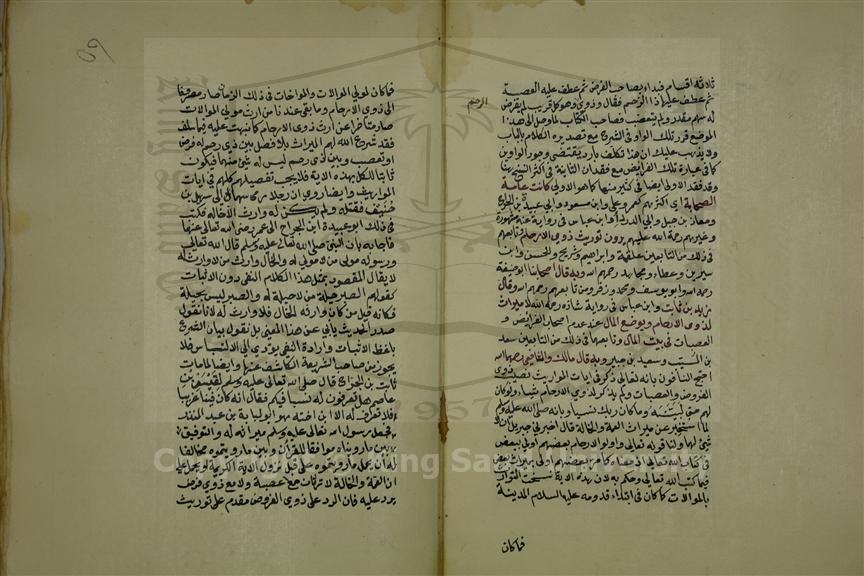 ثلاثة اقسام فبداء بصاحب الفرض ثم عطف عليه العصبة
ثم عطف عليها ذا الرحم فقال وذوي وهو كل قريب لم يفرض
له سهم مقدر ولم يتعصب فصاحب الكتاب لما وصل الى هذا
الموضع قرر تلك الواو في الشروع مع تصديره الكلام بالباب
ولا يذهب عليك ان هذا تكلف بارد يقتضي وجود الواو بن
كما في عبارة تلك الفرايض مع فقدان الثانية في اكثر النسخ هنا
وقد فقد الاولى ايضا في كثير منها كما هو الاولى كانت عامة
الصحابة اي اكثرهم كعمر وعلي وابن مسعود وابي عبيدة بن الجراح
ومعاذ بن جبل وابي الدرداء وابن عباس في رواية عنه مشهورة
وغيرهم رحمة الله عليهم يرون توريث ذوي الارحام وتابعهم
في ذلك من التابعين علقمة وابراهيم وشريح والحسن وابن
سيرين وعطاء ومجاهد رحمهم الله وبه قال اصحابنا ابو حنيفة
رحمه الله وابو يوسف ومحمد وزفر ومن تابعهم رحمهم الله وقال
زيد بن ثابت وابن عباس في رواية شاذة رحمه الله لا ميراث
لذوي الارحام ويوضع المال عند عدم اصحاب الفرائض و
العصبات في بيت المال وتابعهما في ذلك من التابعين سعيد
بن المسيب وسعيد بن جبير وبه قال مالك والشافعي رحمهما الله
احتج النافون بانه تعالى ذكر في ايات المواريث نصيب ذوي
الفروض والعصبات ولم يذكر لذوي الارحام شيئا ولو كان
لهم حق لبينه وما كان ربك نسيا وبانه صلى الله عليه وسلم
لما استخبر عن ميراث العمة والخالة قال اخبرني جبريل ان لا
شئ لهما ولنا قوله تعالى واولو الارحام بعضهم اولى ببعض
في كتاب الله تعالى اذ معناه كما مر بعضهم اولى بميراث بعض
فيما كتب الله تعالى وحكم به لان بهذه الاية نسخت التوارث
بالموالات كما كان في ابتداء قدومه عليه السلام المدينة
الرحم
فما كان
فما كان لمولى الموالات والمواخات في ذلك الزمان صار مصروفا
الى ذوي الارحام وما بقي عندنا من ارث مولى الموالات
صار متاخرا عن ارث ذوي الارحام كما نبهت عليه فيما سلف
فقد شرع الله لهم الميراث بلا فصل بين ذي رحم له فرض
او تعصب وبين ذي رحم ليس له شئ منهما فيكون
ثابتا للكل بهذه الاية فلا يجب تفصيلهم كلهم في ايات
المواريث وايضا روي ان رجلا رمى سهما الى سهل بن
حنيف فقتله ولم يكن له وارث الا خاله فكتب
في ذلك ابو عبيدة ابن الجراح الى عمر رضي الله تعالى عنهما
فاجابه بان النبي صلى الله تعالى عليه وسلم قال الله تعالى
ورسوله مولى من لا مولى له والخال وارث من لا وارث له
لا يقال المقصود بمثل هذا الكلام النفي دون الاثبات
كقولهم الصبر حيلة من لا حيلة له والصبر ليس بحيلة
فكانه قيل من كان وارثه الخال فلا وارث له لانا نقول
صدر الحديث يابى عن هذا المعنى بل نقول بيان الشرع
بلفظ الاثبات وارادة النفي يودي الى الالتباس فلا
يجوز من صاحب الشريعة الكاشف عنها وايضا لما مات
ثابت بن الدحداح قال صلى الله تعالى عليه وسلم لقيس بن
عاصم هل تعرفون له نسبا فيكم فقال انه كان فينا غريبا
فلا نعرف له الا ابن اخته هو ابو لبابة بن عبد المنذر
فجعل رسول الله تعالى عليه وسلم ميراثه له والتوفيق
بين ما رويناه موافقا للقرآن وبين ما رويتموه مخالفا
له ان يحمل ما رويتموه على قبل نزول الاية الكريمة او يحمل على
ان العمة والخالة لا ترثان مع عصبة ولا مع ذوي فرض
يرد عليه فان الرد على ذوي الفروض مقدم على توريث